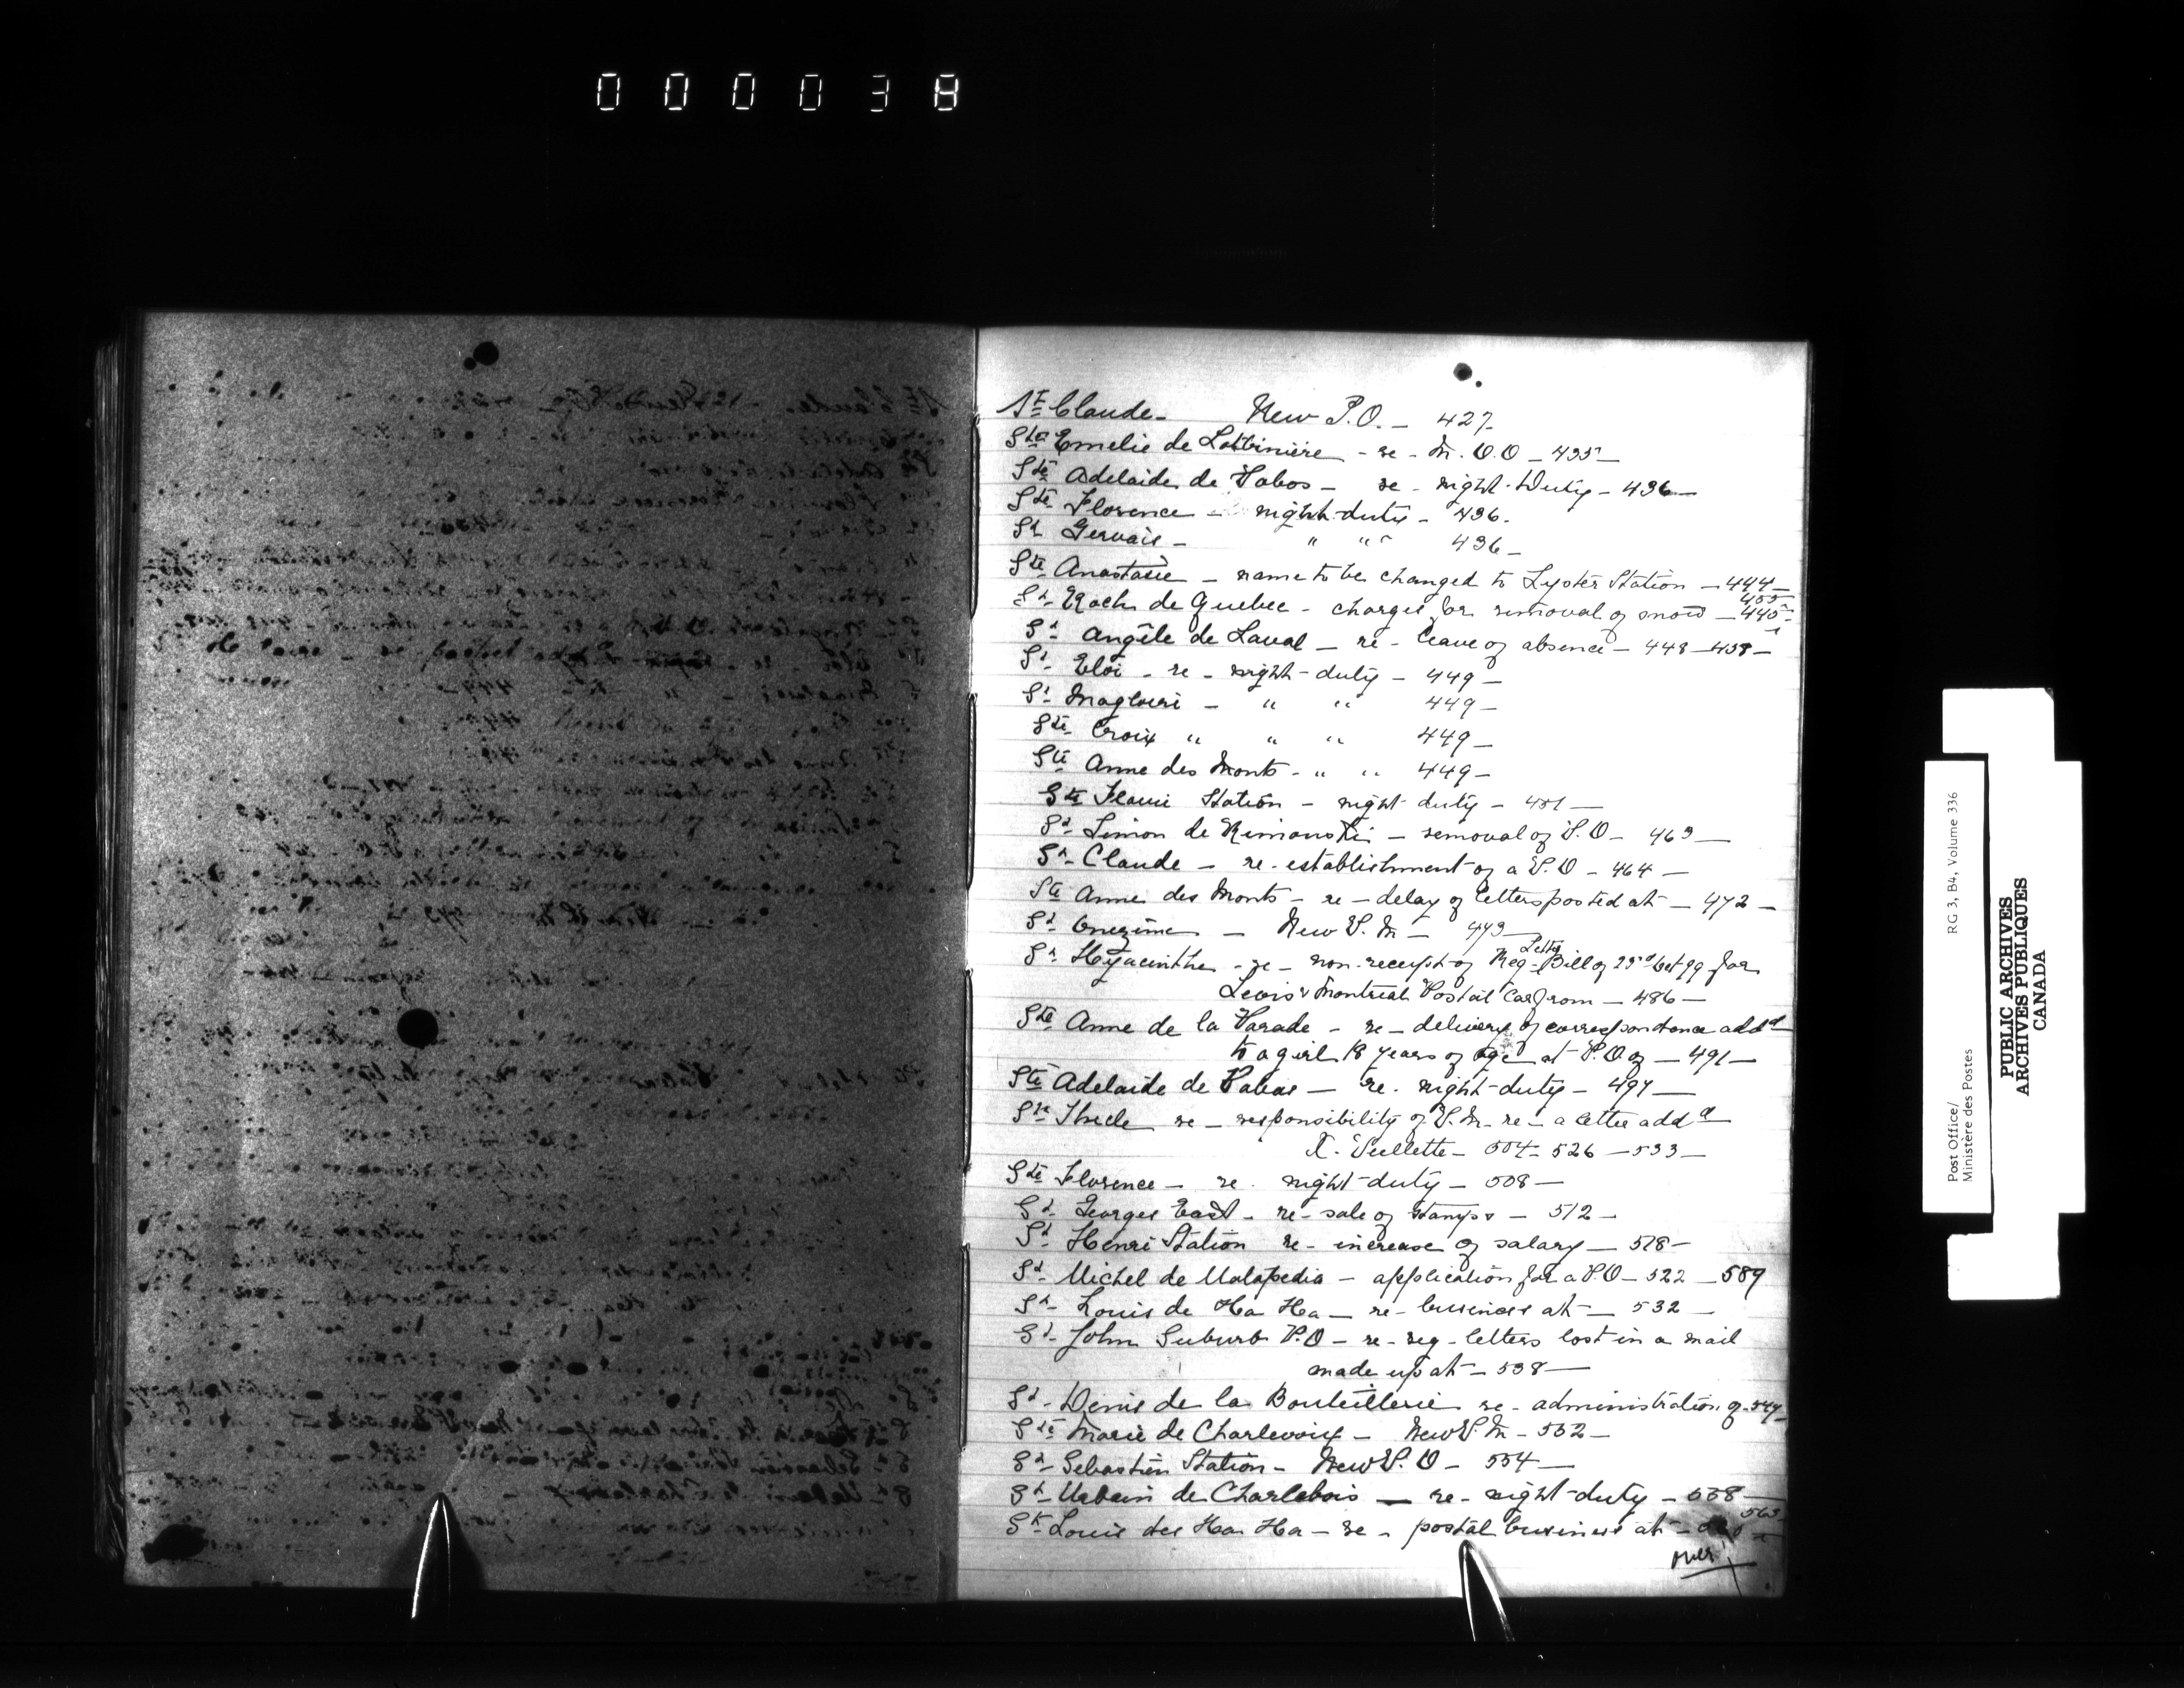 000038
St Claude - New P.O. - 427-
Ste Emelie de Lotbiniere - re - M.O.O - 435-
Ste Adelaide de Pabos - re - night-Duty - 436-
Ste Florence - night-duty - 436.
St Gervais - " " 436-
Ste Anastasie - name to be changed to Lyster Station - 444-
St Roch de Quebec - charges for removal of snow - 445- 455-
St Angèle de Laval - re - leave of absence - 448 - 458-
St Eloi - re - night-duty - 449-
St Magloire - " " 449-
Ste Croix " " " 449-
Ste Anne des Monts - " " 449-
Ste Flavie Station - night-duty - 451-
St Simon de Rimouski - removal of P.O - 463-
St Claude - re-establishment of a P.O - 464-
Ste Anne des Monts - re - delay of letters posted at - 472-
St Onezime - New P.M - 473-
St Hyacinthe - re - non-receipt of Reg- Letter Bill of 25th Oct 99 for
Levis & Montreal Postal Car from - 486-
Ste Anne de la Parade - re - delivery of correspondence addd
to a girl 18 years of age at P.O of - 491-
Ste Adelaide de Pabos - re. night-duty - 497-
Ste Thecle re - responsibility of P.M - re - a letter addd
X. Veillette - 504 - 526 - 533-
Ste Florence - re. night-duty - 508-
St Georges East - re - sale of stamps - 512-
St Henri Station re - increase of salary - 518-
St Michel de Matapedia - application for a P.O - 522 - 589
St Louis de Ha Ha - re - business at - 532-
St John Suburb P.O - re - reg - letters lost in a mail
made up at - 538-
St Denis de la Bouteillerie re - administration of - 547-
Ste Marie de Charlevoix - New P.M - 552-
St Sebastien Station - New P.O - 554-
St Urbain de Charlebois - re - night-duty - 558-
St Louis des Ha Ha - re - postal business at - 563-
over
Post Office/ RG 3, B4, Volume 336
Ministère des Postes
PUBLIC ARCHIVES
ARCHIVES PUBLIQUES
CANADA